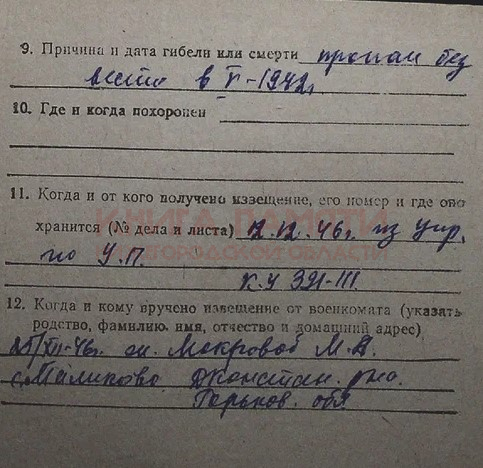 9. Причина и дата гибели или смерти пропал без
вести в V-1942г
10. Где и когда похоронен
11. Когда и от кого получено извещение, его номер и где оно
хранится (№ дела и листа) 12.12.46г. из Упр.
по У.П.
КНИГА ПАМЯТИ
НИЖЕГОРОДСКОЙ ОБЛАСТИ
К.У 321-III.
12. Когда и кому вручено извещение от военкомата (указать
родство, фамилию, имя, отчество и домашний адрес)
25/XII-46г. Мокровой М.
с. Маликово Дконстан. р-на.
Горьков. обл